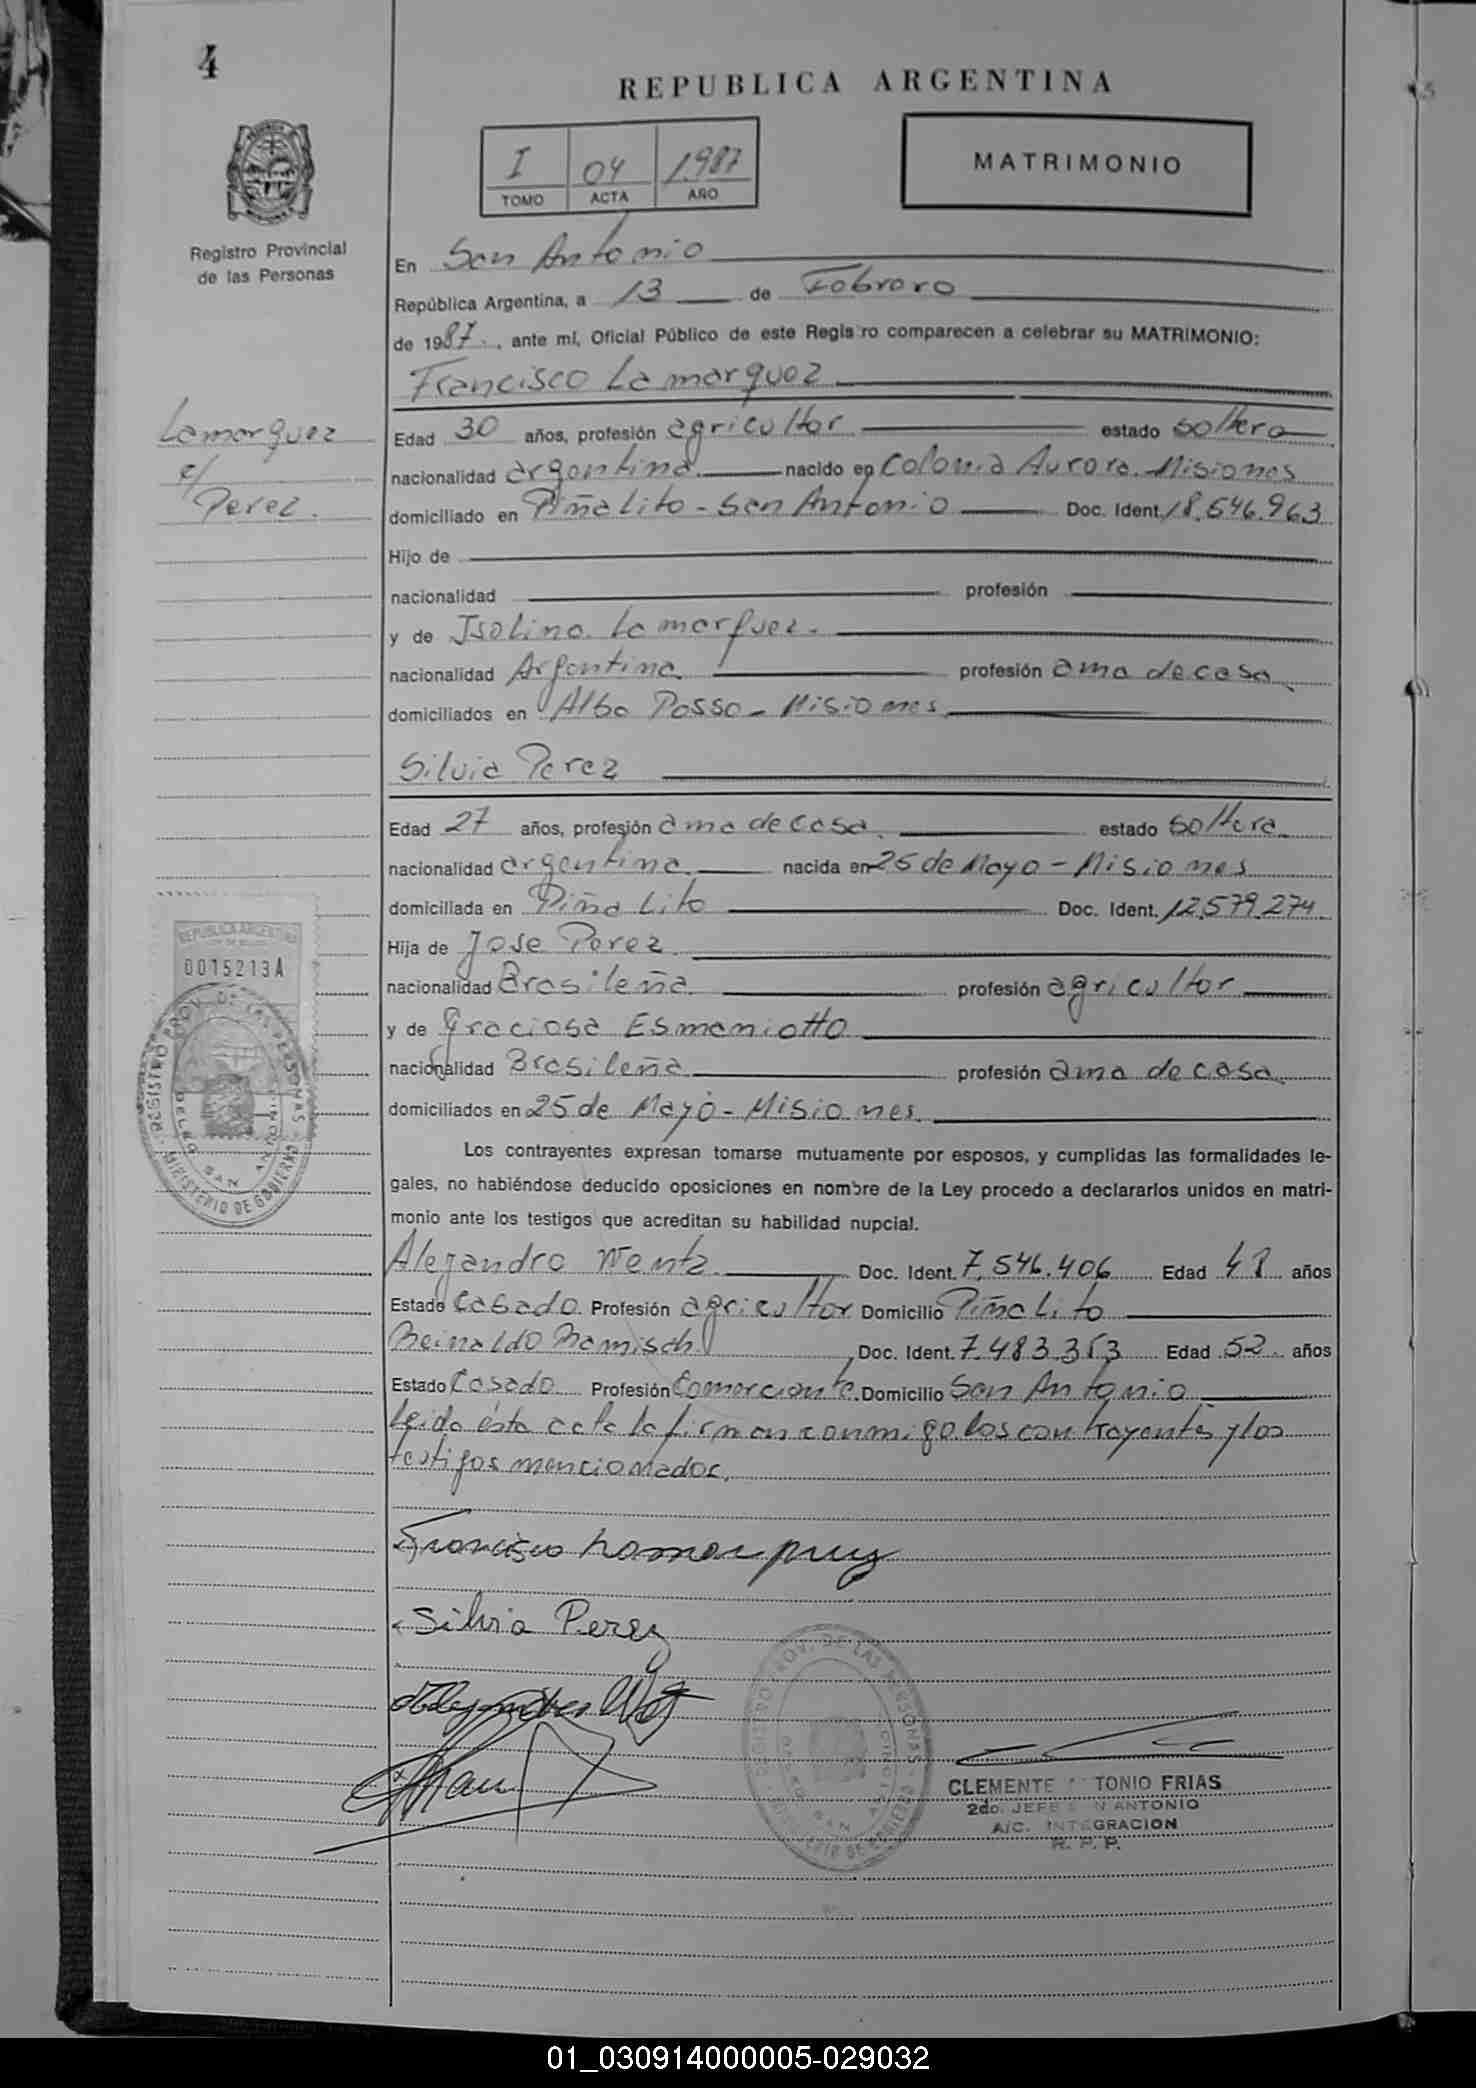 4
REPUBLICA ARGENTINA
I 04 1.987
TOMO ACTA AÑO
MATRIMONIO
Registro Provincial
de las Personas
En San Antonio
República Argentina, a 13 de Febrero
de 1987., ante mí, Oficial Público de este Regis ro comparecen a celebrar su MATRIMONIO:
Francisco Lamarquez
Lamarquez
c/
Perez.
Edad 30 años, profesión agricultor estado soltero
nacionalidad argentina nacido en Colonia Aurora. Misiones
domiciliado en Piñalito - San Antonio Doc. Ident. 18.546.963
Hijo de
nacionalidad profesión
y de Isolina Lamarquez.
nacionalidad Argentina profesión ama de casa
domiciliados en Alba Posse - Misiones
Silvia Perez
Edad 27 años, profesión ama de casa. estado soltera
nacionalidad argentina nacida en 25 de Mayo - Misiones
domiciliada en Piñalito Doc. Ident. 12.579.274
Hija de Jose Perez
nacionalidad Brasileña profesión agricultor
y de Graciosa Esmaniotto
nacionalidad Brasileña profesión ama de casa
domiciliados en 25 de Mayo - Misiones
REPUBLICA ARGENTINA
0015213A
REGISTRO PROV. DE LAS PERSONAS
DELEG. SAN ANTONIO
MINISTERIO DE GOBIERNO
Los contrayentes expresan tomarse mutuamente por esposos, y cumplidas las formalidades le-
gales, no habiéndose deducido oposiciones en nombre de la Ley procedo a declararlos unidos en matri-
monio ante los testigos que acreditan su habilidad nupcial.
Alejandro Wentz Doc. Ident. 7.546.406 Edad 48 años
Estado Casado Profesión agricultor Domicilio Piñalito
Reinaldo Ramisch Doc. Ident. 7.483.353 Edad 52 años
Estado Casado Profesión Comerciante. Domicilio San Antonio
Leida ésta acta la firman conmigo los contrayentes y los
testigos mencionados.
Francisco Lamarquez
Silvia Perez
CLEMENTE TONIO FRIAS
2do. JEFE N ANTONIO
A/C. INTEGRACION
R. P. P.
01_030914000005-029032